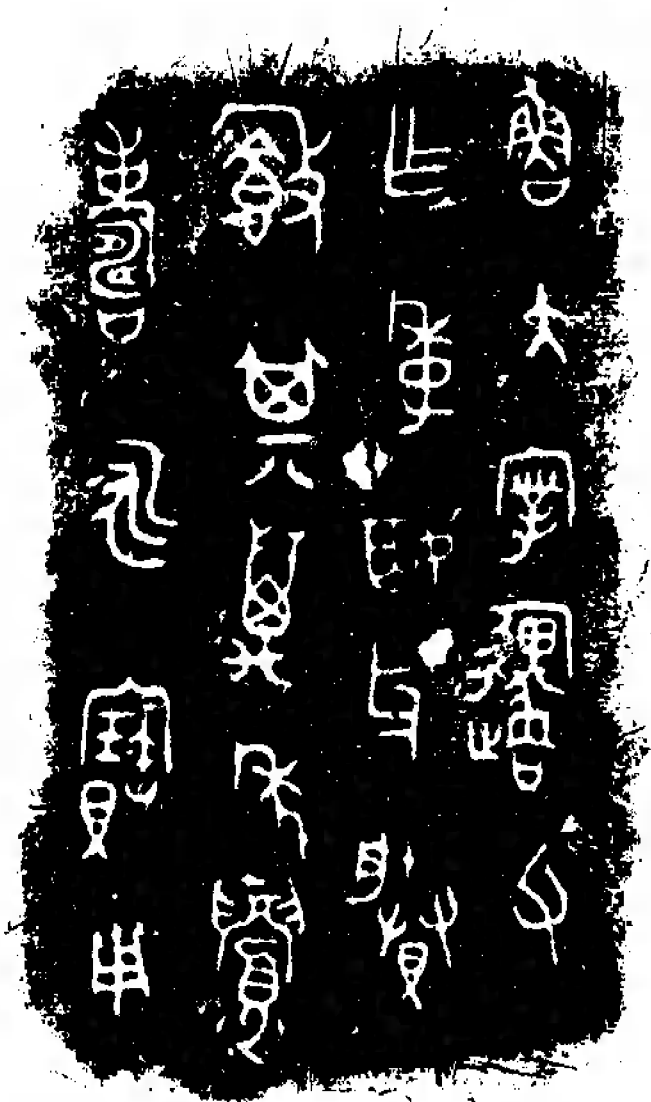 魯大宰邍父
作季姬牙媵
簋其萬年眉
壽永寶用